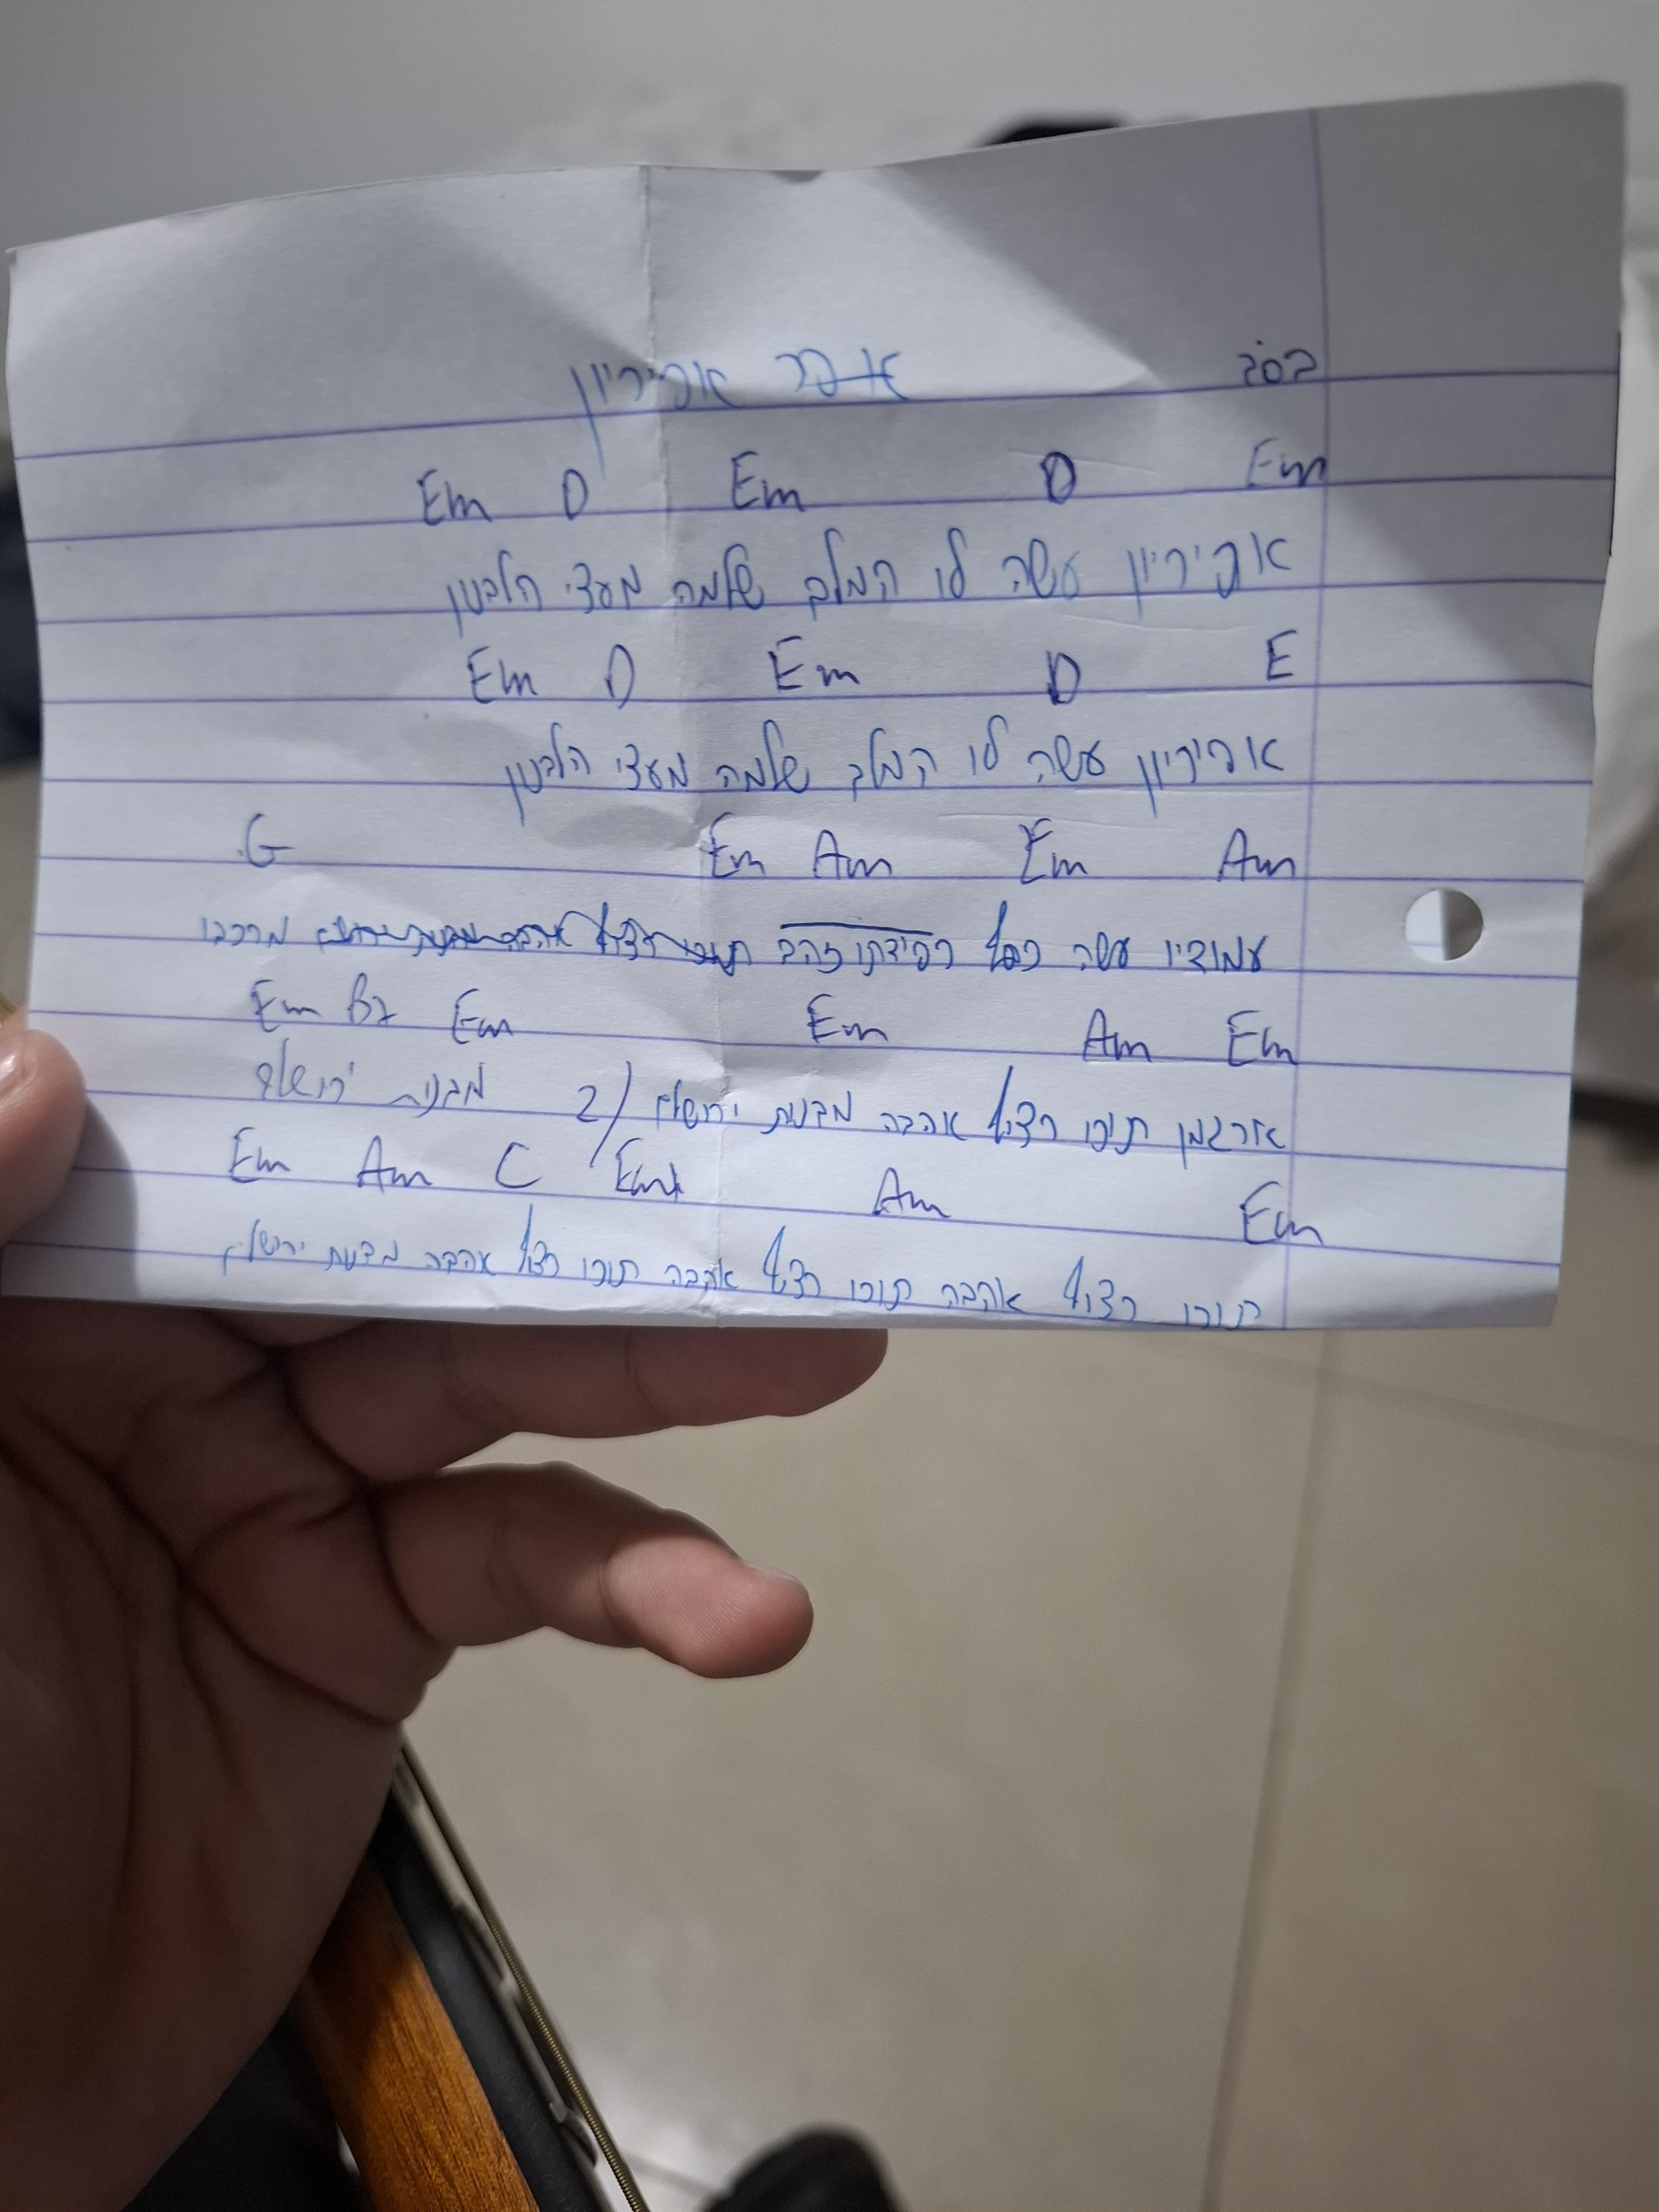 בס"ד
אפריון
Em D Em D Em
אפיריון עשה לו המלך שלמה מעצי הלבנון
E D Em D Em
אפיריון עשה לו המלך שלמה מעצי הלבנון
Am Em Am Em G
עמודיו עשה כסף רפידתו זהב מרכבו
Em Am Em Em B7 Em
ארגמן תוכו רצוף אהבה מבנות ירושלים /2 מבנות ירושלים
Em Am Em C Am Em
תוכו רצוף אהבה תוכו רצוף אהבה תוכו רצוף אהבה מבנות ירושלים